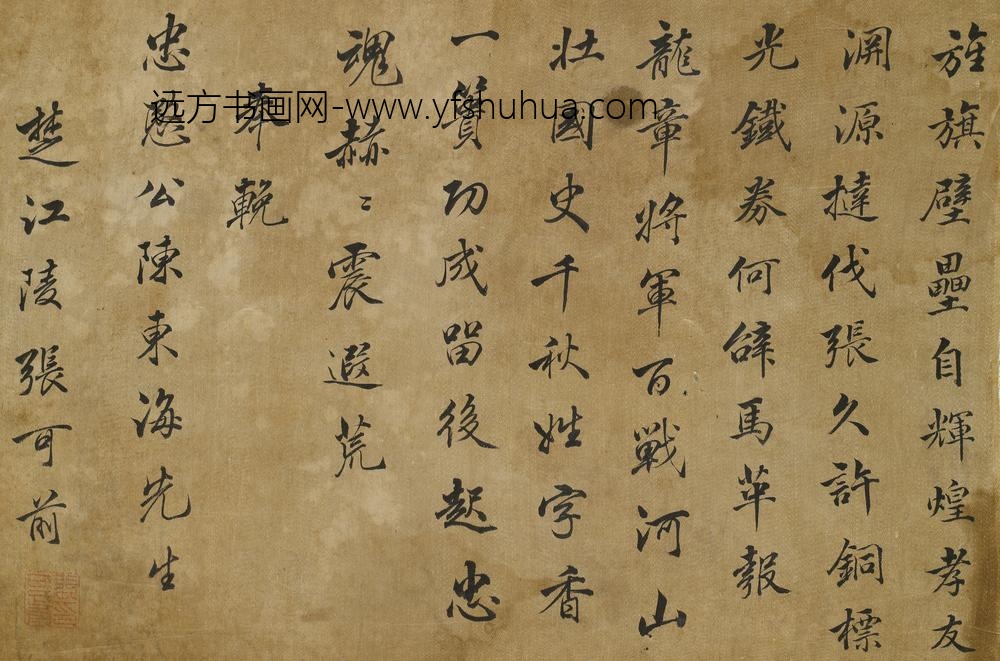 旌旗壁壘自輝煌孝友
淵源撻伐張久許銅標
光鐵券何辭馬革報
龍章將軍百戰河山
壯國史千秋姓字香
一質功成留後起忠
魂赫〻震遐荒
奉輓
忠愍公陳東海先生
楚江陵張可前
远方书画网-www.yfshuhua.com